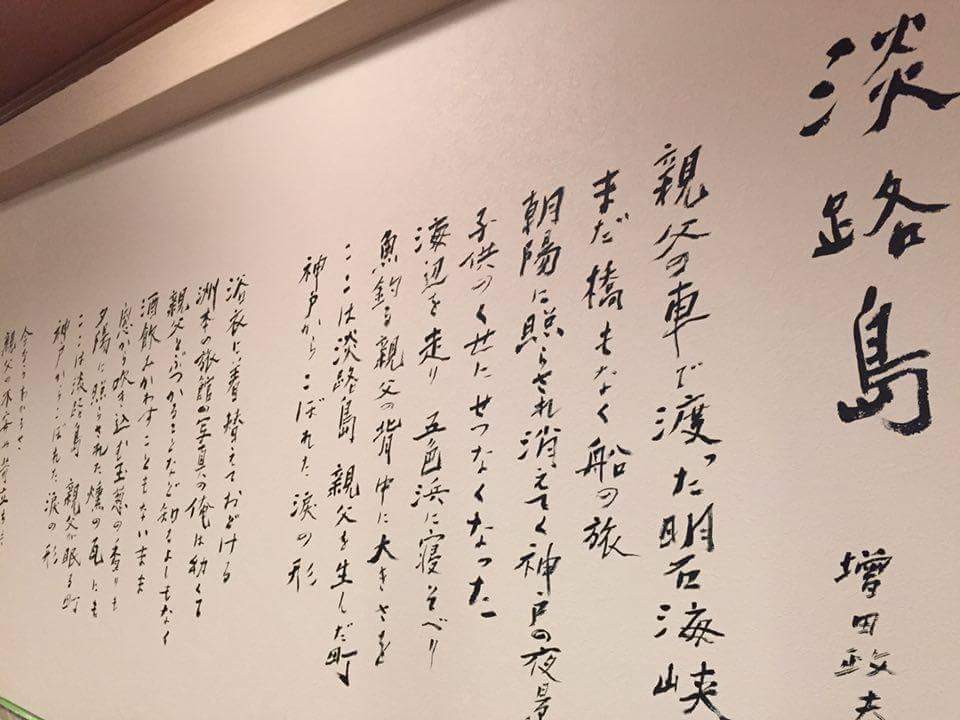 淡路島
増田政夫
親父の車で渡った明石海峡
まだ橋もなく船の旅
朝陽に照らされ消えてく神戸の夜景
子供のくせにせつなくなった
海辺を走り 五色浜に寝そべり
魚釣る親父の背中に大きさを
ここは淡路島 親父を生んだ町
神戸からこぼれた涙の形
浴衣に着替えておどける
洲本の旅館の写真の俺は幼くて
親父とぶつかることなど知るよしもなく
酒飲みかわすこともないまま
窓から吹き込む玉葱の香りも
夕陽に照らされた燻の瓦にも
ここは淡路島 親父が眠る町
神戸からこぼれた涙の形
今ならわかるさ、
親父の